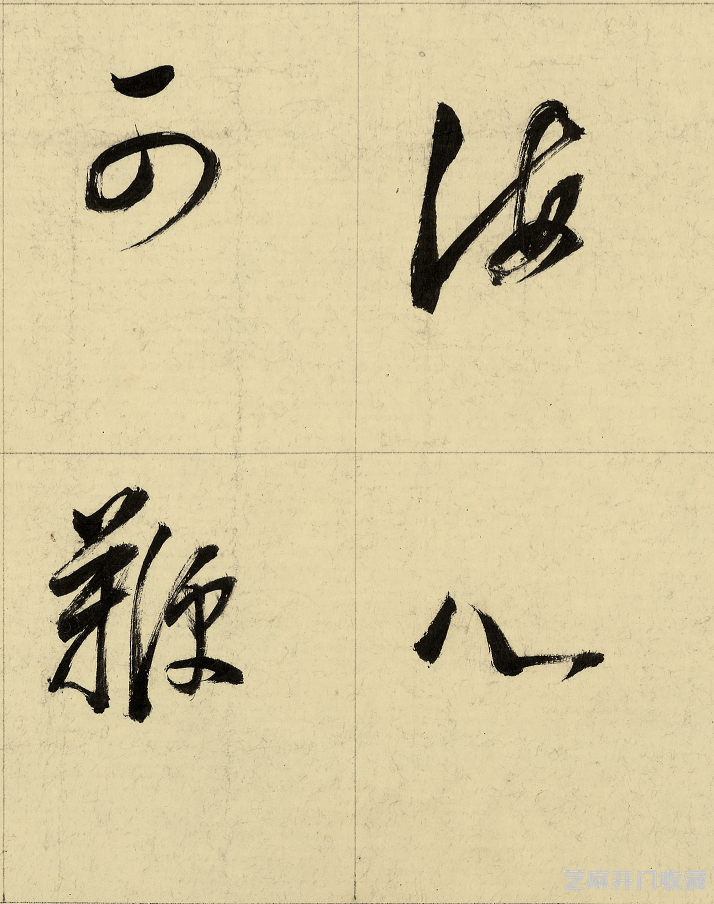 海八
可鞭
芝麻开门收藏